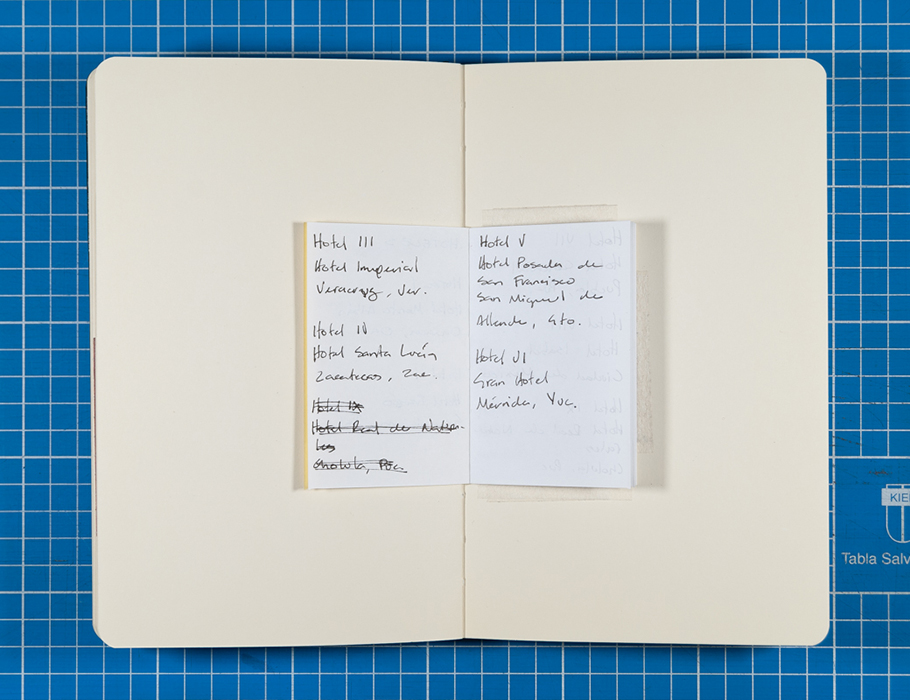 Hotel III
Hotel Imperial
Veracruz, Ver.
Hotel IV
Hotel Santa Lucía
Zacatecas, Zac.
Hotel IX
Hotel Real de Natura-
les
Cholula, Pue.
Hotel V
Hotel Posada de
San Francisco
San Miguel de
Allende, Gto.
Hotel VI
Gran Hotel
Mérida, Yuc.
KIE
Tabla Salv